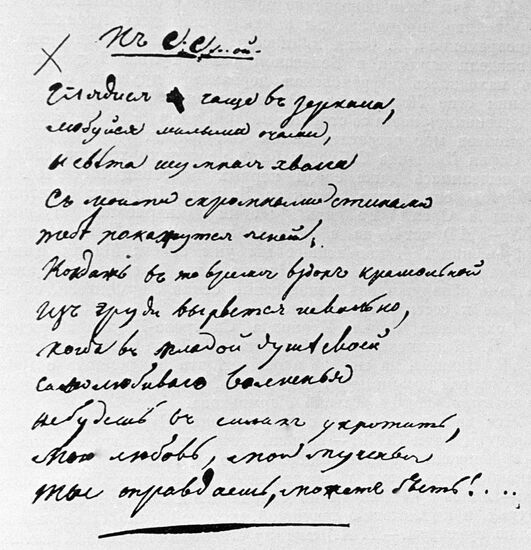 Къ С. С....ой.
Глядися чаще въ зеркала,
любуйся милыми очами,
и свѣта шумная хвала
Съ моими скромными стихами
тебѣ покажутся ясней;
Когдажъ въ то время вздохъ крамольной
изъ груди вырвется невольно,
когда въ младой душѣ своей
самолюбиваго волненья
небудешь въ силахъ укротить,
мою любовь, мои мученья
ты оправдаешь, можетъ быть!...